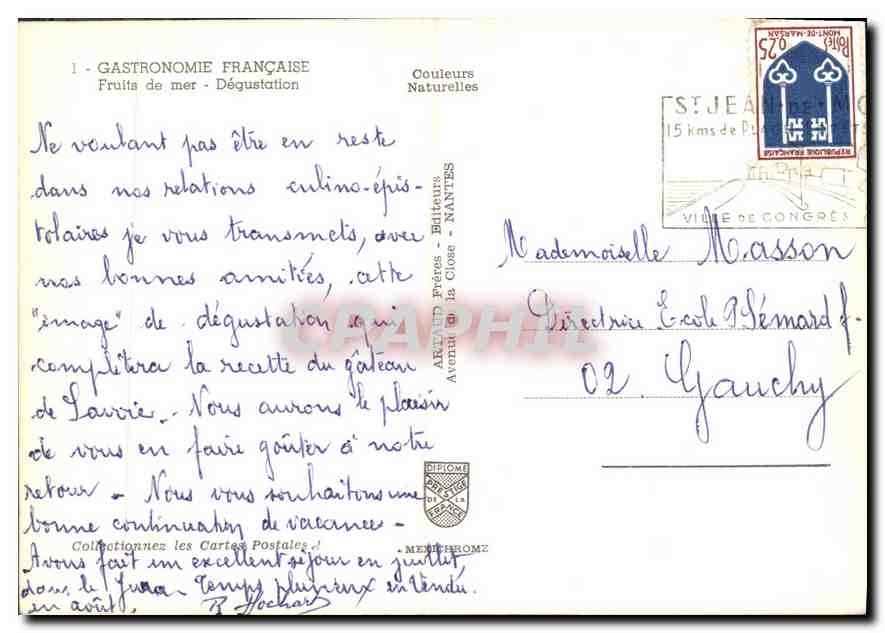 1 - GASTRONOMIE FRANÇAISE
Fruits de mer - Dégustation
Couleurs
Naturelles
Ne voulant pas être en reste
dans nos relations culino-épis-
tolaires je vous transmets, avec
nos bonnes amitiés, cette
"image" de dégustation qui
complètera la recette du gâteau
de Savoie. Nous aurons le plaisir
de vous en faire goûter à notre
retour - Nous vous souhaitons une
bonne continuation de vacances -
Collectionnez les Cartes Postales !
Avons fait un excellent séjour en juillet,
dans le Jura - Temps pluvieux en Vendée
en août.
ARTAUD Frères - Editeurs
Avenue de la Close - NANTES
DIPLOME
PRESTIGE
DE LA
FRANCE
- MEXICHROME
POSTES
MONT-DE-MARSAN
0,25
REPUBLIQUE FRANÇAISE
ST JEAN-DE-MO
15 kms de
VILLE DE CONGRÈS
Mademoiselle Masson
Directrice Ecole P. Sémard f.
02 Gauchy
CPAPHIL